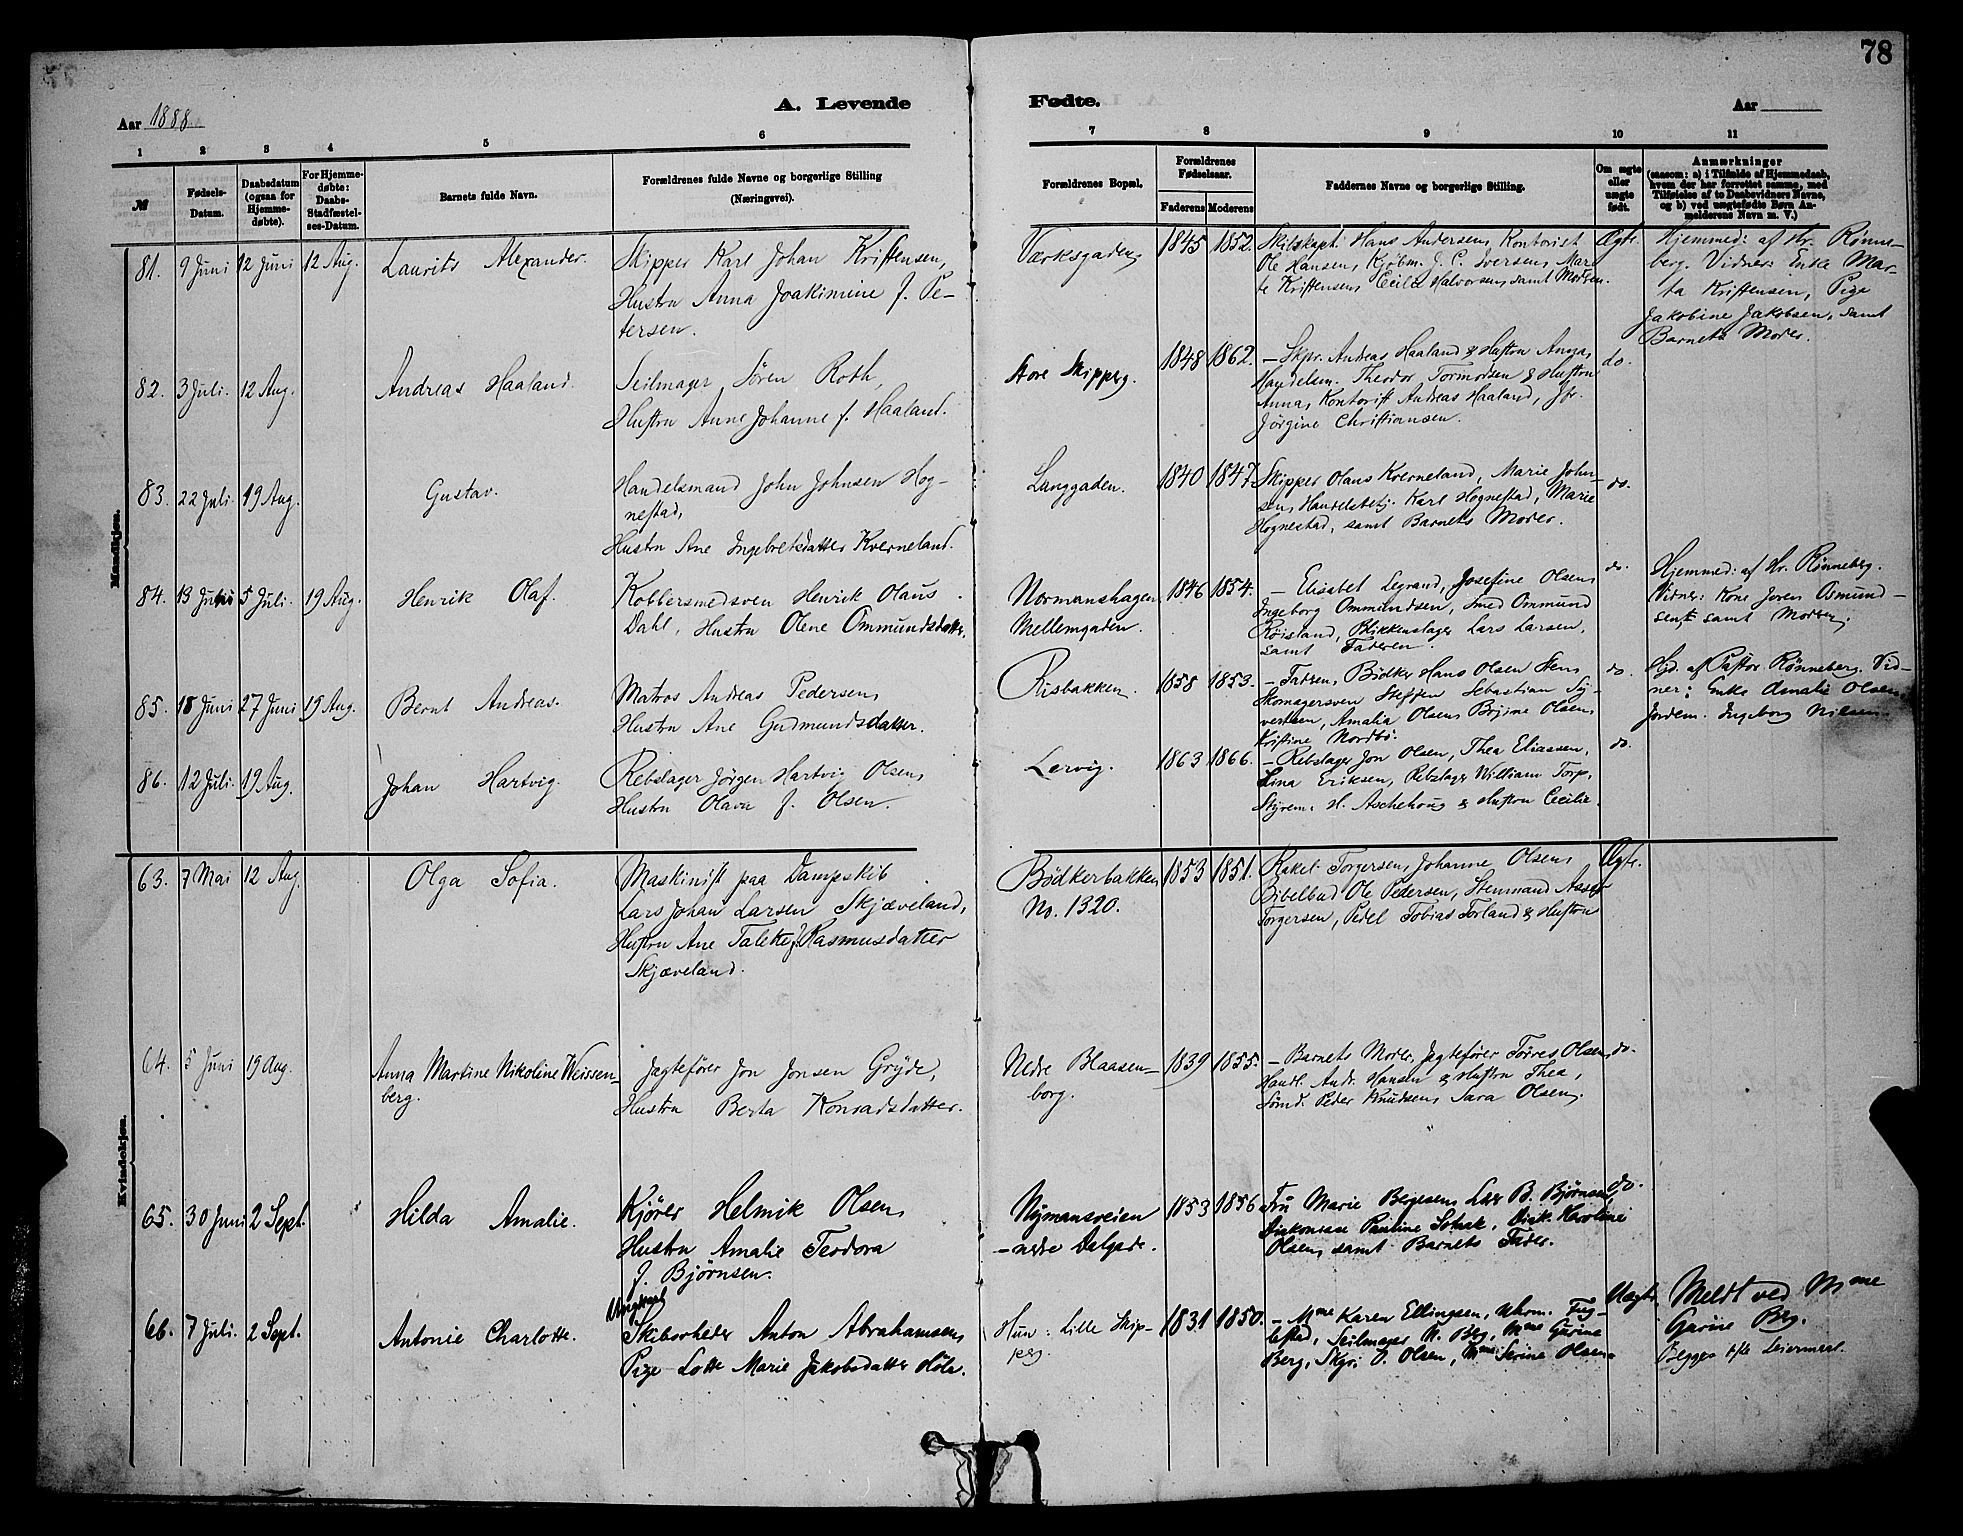 78
A. Levende
Fødte.
Aar 1888
Aar
1 2 3 4 5 6 7 8 9 10 11
№
Fødsels-
Datum.
Daabsdatum
(ogsaa for
Hjemme-
døbte).
For Hjemme-
døbte:
Daabs-
Stadfæstel-
ses-Datum.
Barnets fulde Navn.
Forældrenes fulde Navne og borgerlige Stilling
(Næringsvei).
Forældrenes Bopæl.
Forældrenes
Fødselsaar.
Faderens Moderens
Faddernes Navne og borgerlige Stilling.
Om ægte
eller
uægte
født.
Anmærkninger
(saasom: a) i Tilfælde af Hjemmedaab,
hvem der har forrettet samme, med
Tilføielse af to Daabsvidners Navne,
og b) ved uægtefødte Børn An-
melderens Navn m. V.)
Mandkjøn.
81. 9 Juni 12 Juni 12 Aug. Laurits Alexander.
Skipper Karl Johan Kristensen,
Hustru Anna Joakimine f. Pe-
tersen.
Værksgaden, 1845 1852.
Skibskapt: Hans Andersen, Kontorist
Ole Hansen, Kjøbm. J. C. Iversen, Mar-
te Kristensen, Cecile Halvorsen, samt Moderen.
Ægte.
Hjemmed: af Hr. Rønne-
berg. Vidner: Enke Mar-
ta Kristensen, Pige
Jakobine Jakobsen, samt
Barnets Moder.
82. 3 Juli. 12 Aug. Andreas Haaland.
Seilmager Søren Roth,
Hustru Anne Johanne f. Haaland.
Store Skipperg. 1848 1862.
- Skpr. Andreas Haaland & Hustru Anna,
Handelsm. Theodor Tormodsen & Hustru
Anna, Kontorist Andreas Haaland, Jfr.
Jørgine Christiansen.
do.
83. 22 Juli. 19 Aug. Gustav.
Handelsmand John Johnsen Hog-
nestad,
Hustru Ane Ingebretsdatter Kverneland.
Langgaden. 1840 1847.
Skipper Olaus Kverneland, Marie John-
sen, Handelsbetj. Karl Hognestad, Marie
Hognestad, samt Barnets Moder.
do.
84. 13 Juni 5 Juli. 19 Aug. Henrik Olaf.
Kobbersmedsven Henrik Olaus
Dahl, Hustru Olene Ommundsdatter,
Normanshagen
Mellemgaden. 1846 1854.
- Elisabet Legrand, Josefine Olsen,
Ingeborg Ommundsen, Smed Ommund
Røisland, Blikkenslager Lars Larsen,
samt Faderen.
do.
Hjemmed: af Hr. Rønneberg.
Vidner: Kone Joren Osmund-
sen, samt Moderen,
85. 18 Juni 27 Juni 19 Aug. Bernt Andreas.
Matros Andreas Pedersen,
Hustru Ane Gudmundsdatter.
Risbakken. 1858 1853.
- Faderen, Bødker Hans Olsen Sten,
Skomagersven Steffen Sebastian Sy-
vertsen, Amalia Olsen, Brjine Olsen,
Kristine Nordbø.
do.
Hjd. af Pastor Rønneberg. Vid-
ner: Enke Amalie Olsen,
Jordem. Ingeborg Nilsen.
86. 12 Juli. 19 Aug. Johan Hartvig.
Rebslager Jørgen Hartvig Olsen,
Hustru Olava f. Olsen.
Lervig. 1863 1866.
- Rebslager Jon Olsen, Thea Eliassen,
Lina Eriksen, Rebslager William Torp,
Styrem. H. Aschehoug & Hustru Cecilie.
do.
Kvindekjøn.
63. 7 Mai 12 Aug. Olga Sofia.
Maskinist paa Dampskib
Lars Johan Larsen Skjæveland,
Hustru Ane Talette f. Rasmusdatter
Skjæveland.
Bødkerbakken
No. 1320. 1853 1851.
Rakel Torgersen, Johanne Olsen,
Bibelbud Ole Pedersen, Stenmand Asser
Torgersen, Pedel Tobias Torland & Hustru
Ægte.
64. 5 Juni 19 Aug. Anna Martine Nikoline Weissen-
berg.
Jagtefører Jon Jonsen Gryde,
Hustru Berta Konradsdatter.
Nedre Blaasen-
borg. 1839 1855.
- Barnets Moder, Jagtefører Tørres Olsen,
Handl. Andr. Hansen & Hustru Thea,
Sømd. Peder Knudsen, Sara Olsen,
do.
65. 30 Juni 2 Sept. Hilda Amalie.
Kjører Helmik Olsen,
Hustru Amalie Teodora
f. Bjørnsen.
Nymansveien
-nedre Dalgade. 1853 1856
Fru Marie Bergesen, Lærer B. Bjørnsen,
Diakonisse Pauline, Diak. Karoline
Olsen, samt Barnets Fader.
do.
66. 7 Juli. 2 Sept. Antonie Charlotte.
Ungkarl
Skibsreder Anton Abrahamsen,
Pige Lotte Marie Jakobsdatter Høle.
Hun: Lille Skip-
perg. 1831 1850.
- Mme Karen Ellingsen, Uhrm. Fug-
lested, Seilmager N. Berg, Mme Gurine
Berg, Skpr. O. Olsen, Mme Serine Olsen.
Uægte.
Meldt ved Mme
Gurine Berg.
Begges 1ste Leiermaal.